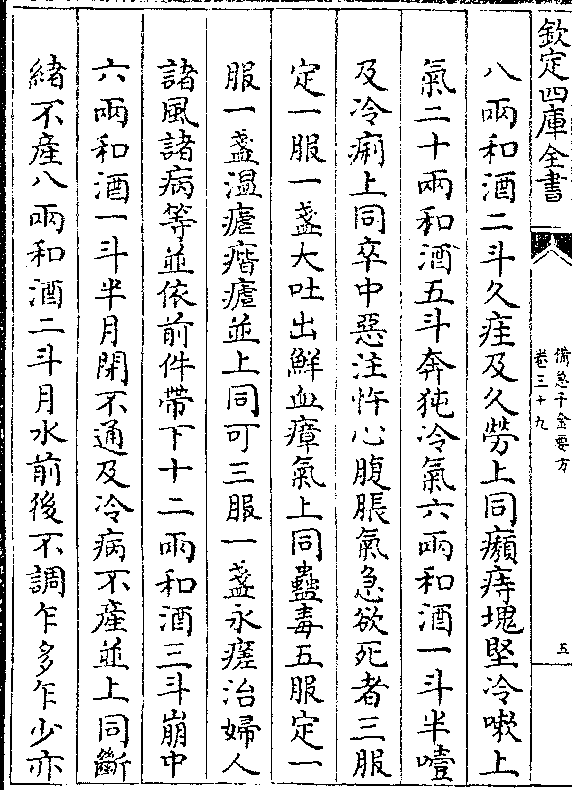 欽定四庫全書
備急千金要方
卷三十九
五
八兩和酒二斗久疰及久勞上同癩痔塊堅冷嗽上
氣二十兩和酒五斗奔㹠冷氣六兩和酒一斗半噎
及冷痢上同卒中惡注忤心腹脹氣急欲死者三服
定一服一盞大吐出鮮血瘴氣上同蠱毒五服定一
服一盞溫瘧痎瘧並上同可三服一盞永瘥治婦人
諸風諸病等並依前件帶下十二兩和酒三斗崩中
六兩和酒一斗半月閉不通及冷病不產並上同斷
緒不產八兩和酒二斗月水前後不調乍多乍少亦